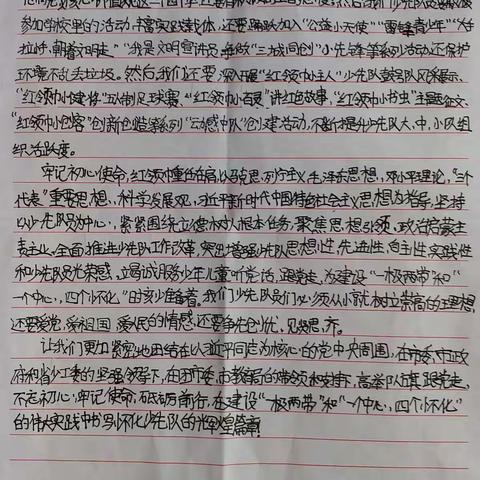 参加学校里的活动,丰富实践载体,还要踊跃加入“公益小天使”“雷锋青少年”“大手
拉小手,朝着文明走”“我是文明宣讲员,争做“三城同创”小先锋等系列活动还保护
环境不乱丢垃圾。然后,我们还要深入开展“红领巾小主人”少先队鼓号队风采展示、
“红领巾小健将”五人制足球赛、“红领巾小百灵”讲红色故事,“红领巾小书虫”主题征文、
“红领巾小创客”创新创造等系列“动感中队”创建活动,不断提升少先队大、中、小队组
织活跃度。
牢记初心使命,红领巾重任在肩,以马克思、列宁主义,毛泽东思想,邓小平理论,“三个
代表”重要思想、科学发展观、习近平新时代中国特色社会主义思想为指导,坚持
以少先队员为中心,紧紧围绕立德树人根本任务,聚焦思想引领、政治启蒙主
责主业,全面推进少先队工作改革,突出增强少先队思想性,先进性,自主性,实践性
和少先队员光荣感,立园诚服务少年儿童听党话,跟党走,为建设“一极两带”和“一
个中心,四个怀化,”时刻准备着。我们少先队员们必须从小就树立崇高的理想,
还要爱党,爱祖国,爱人民的情感,还要争先创优,见贤思齐。
让我们更加紧密地团结在以习近平同志为核心的党中央周围,在市委、市政
府和省少工委的坚强领导下,在团市委,市教育局的带领和支持下,高举队旗跟党走,
不忘初心,牢记使命,砥砺前行,在建设“一极两带”和“一个中心,四个怀化”
的伟大实践中书写怀化少先队的光辉煌篇章!